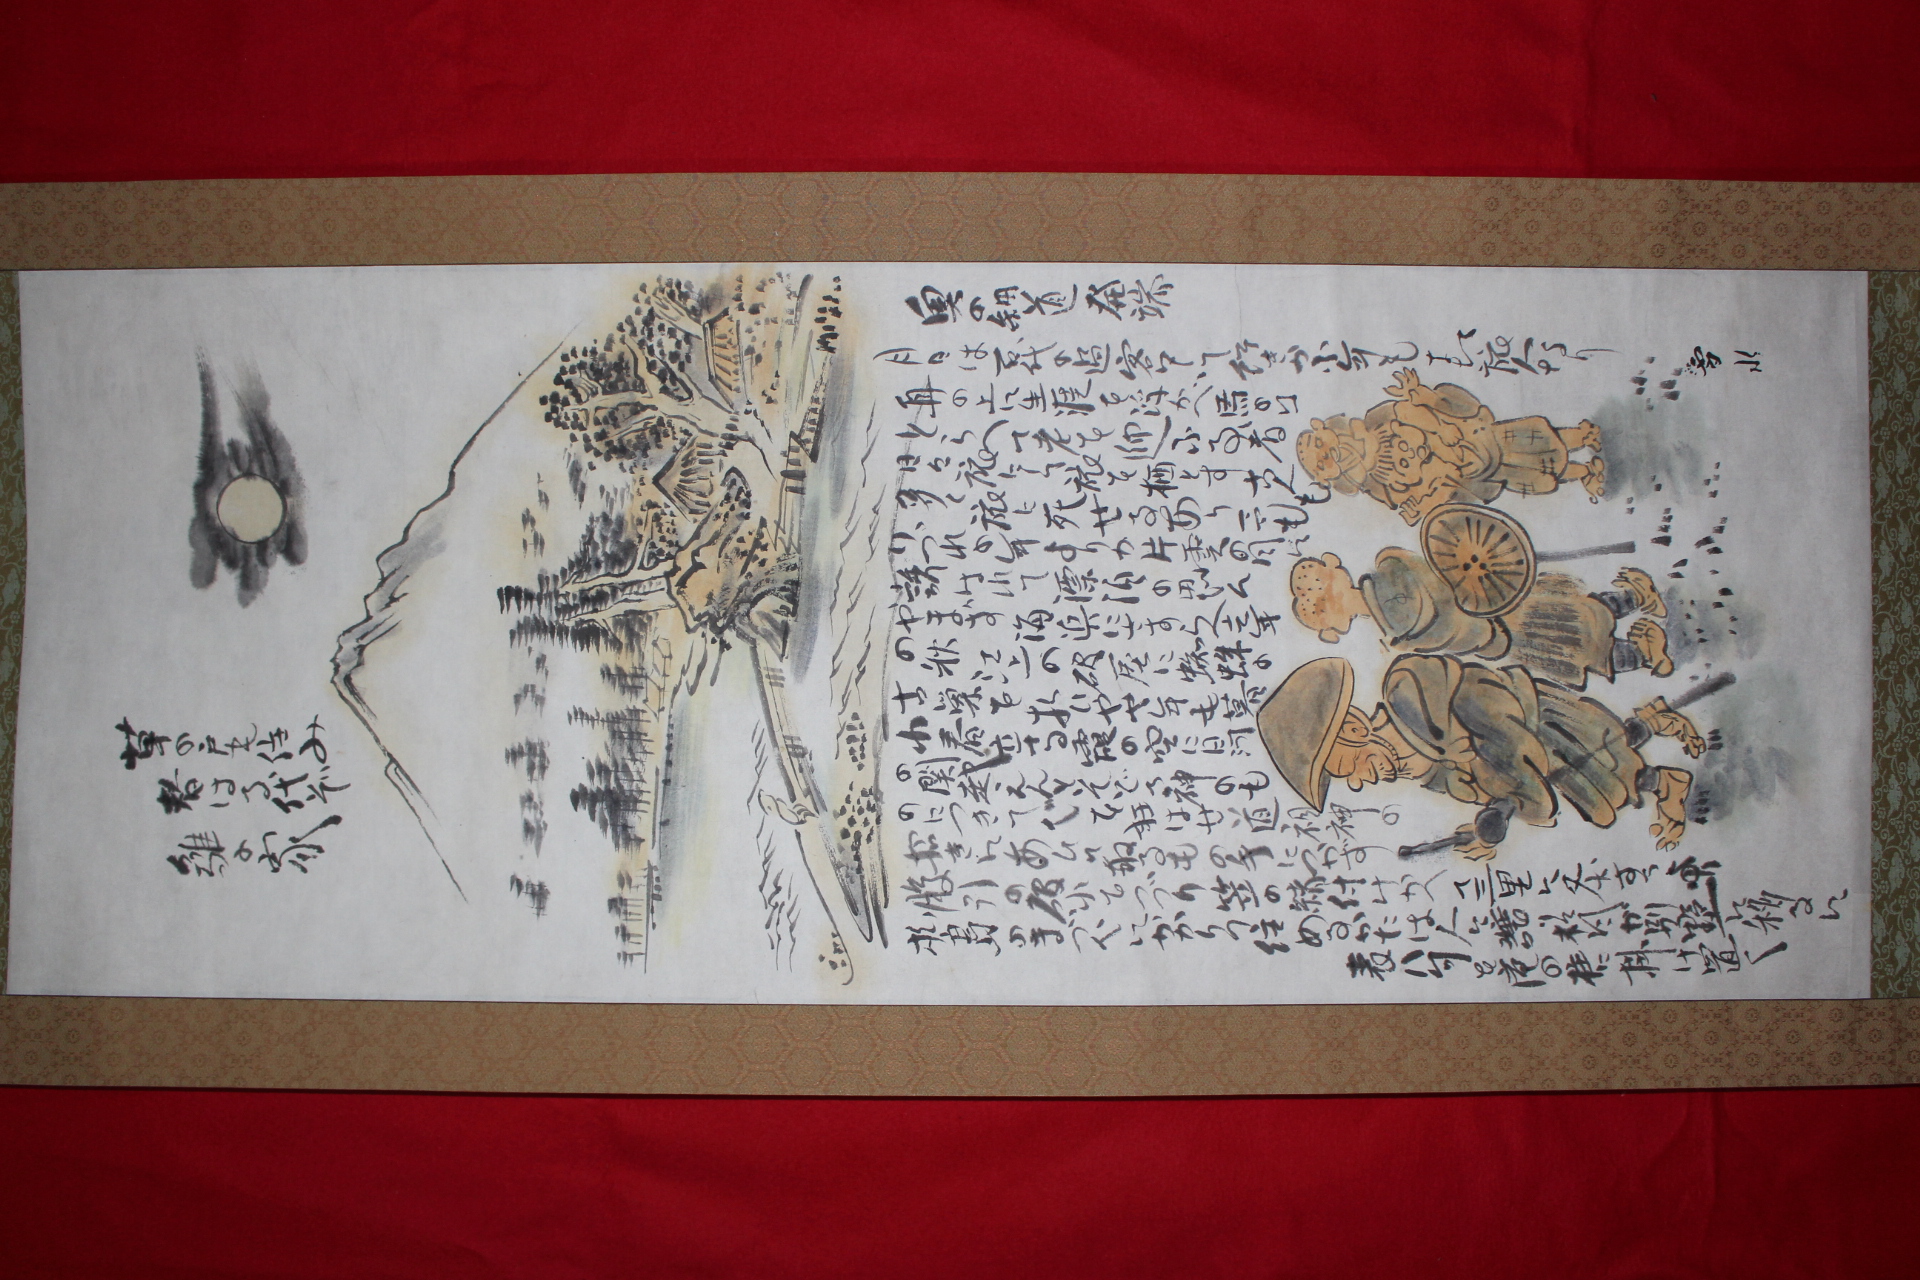 草の戸も住み
替はる代ぞ
雛の家
奥の細道 発端
月日は百代の過客にして行きかふ年もまた旅人なり
舟の上に生涯を浮かべ馬の口
とらへて老を迎ふる者
は日々旅にして旅を栖とす古人も
多く旅に死せるあり予も
いづれの年よりか片雲の風に
誘はれて漂泊の思ひ
やまず海浜にさすらへ去年の
秋江上の破屋に蜘蛛の
古巣を払ひてやや年も暮
春立てる霞の空に白河
の関越えんとそぞろ神の
物につきて心を狂はせ道祖神の
招きにあひて取るもの手につかず
股引の破れをつづり笠の緒付けかへて三里に灸すうるより
松島の月まづ心にかかりて住める方は人に譲り杉風が別墅に移るに
表八句を庵の柱に掛け置く